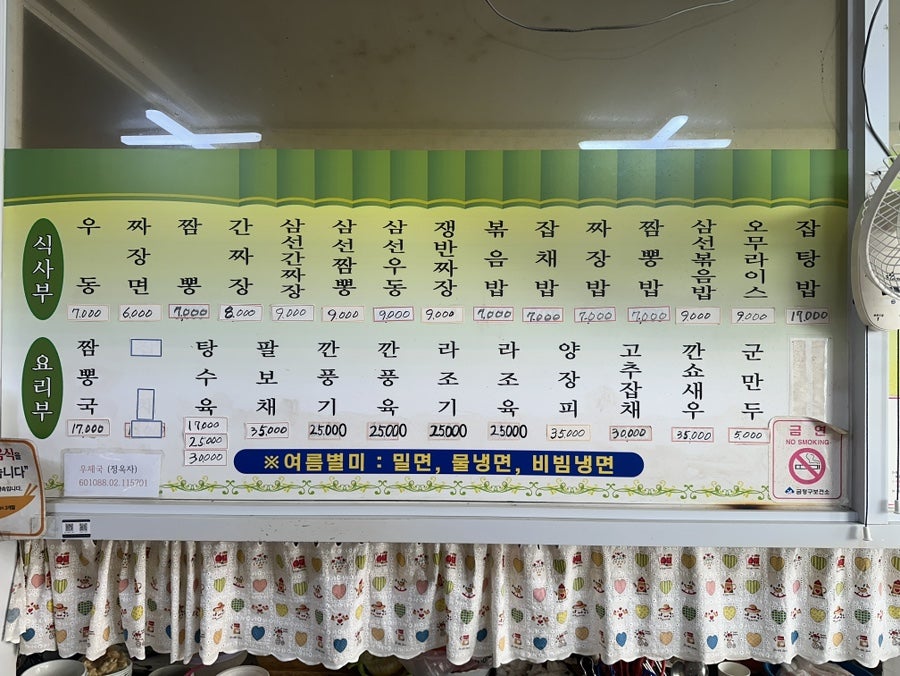 식사부
우동 7,000
짜장면 6,000
짬뽕 7,000
간짜장 8,000
삼선간짜장 9,000
삼선짬뽕 9,000
삼선우동 9,000
쟁반짜장 9,000
볶음밥 7,000
잡채밥 7,000
짜장밥 7,000
짬뽕밥 7,000
삼선볶음밥 9,000
오무라이스 9,000
잡탕밥 17,000
요리부
짬뽕국 17,000
탕수육 17,000
25,000
30,000
팔보채 35,000
깐풍기 25,000
깐풍육 25,000
라조기 25,000
라조육 25,000
양장피 35,000
고추잡채 30,000
깐쇼새우 35,000
군만두 5,000
※여름별미 : 밀면, 물냉면, 비빔냉면
우체국 (정옥자)
601088.02.115701
금연
NO SMOKING
금정구보건소